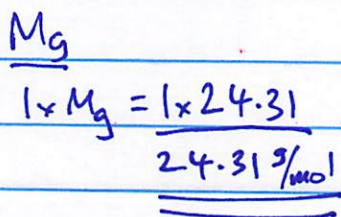 Mg
1 x Mg = 1 x 24.31
24.31 g/mol